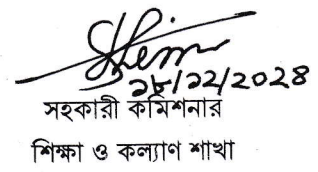 ১৮/১২/২০২৪
সহকারী কমিশনার
শিক্ষা ও কল্যাণ শাখা